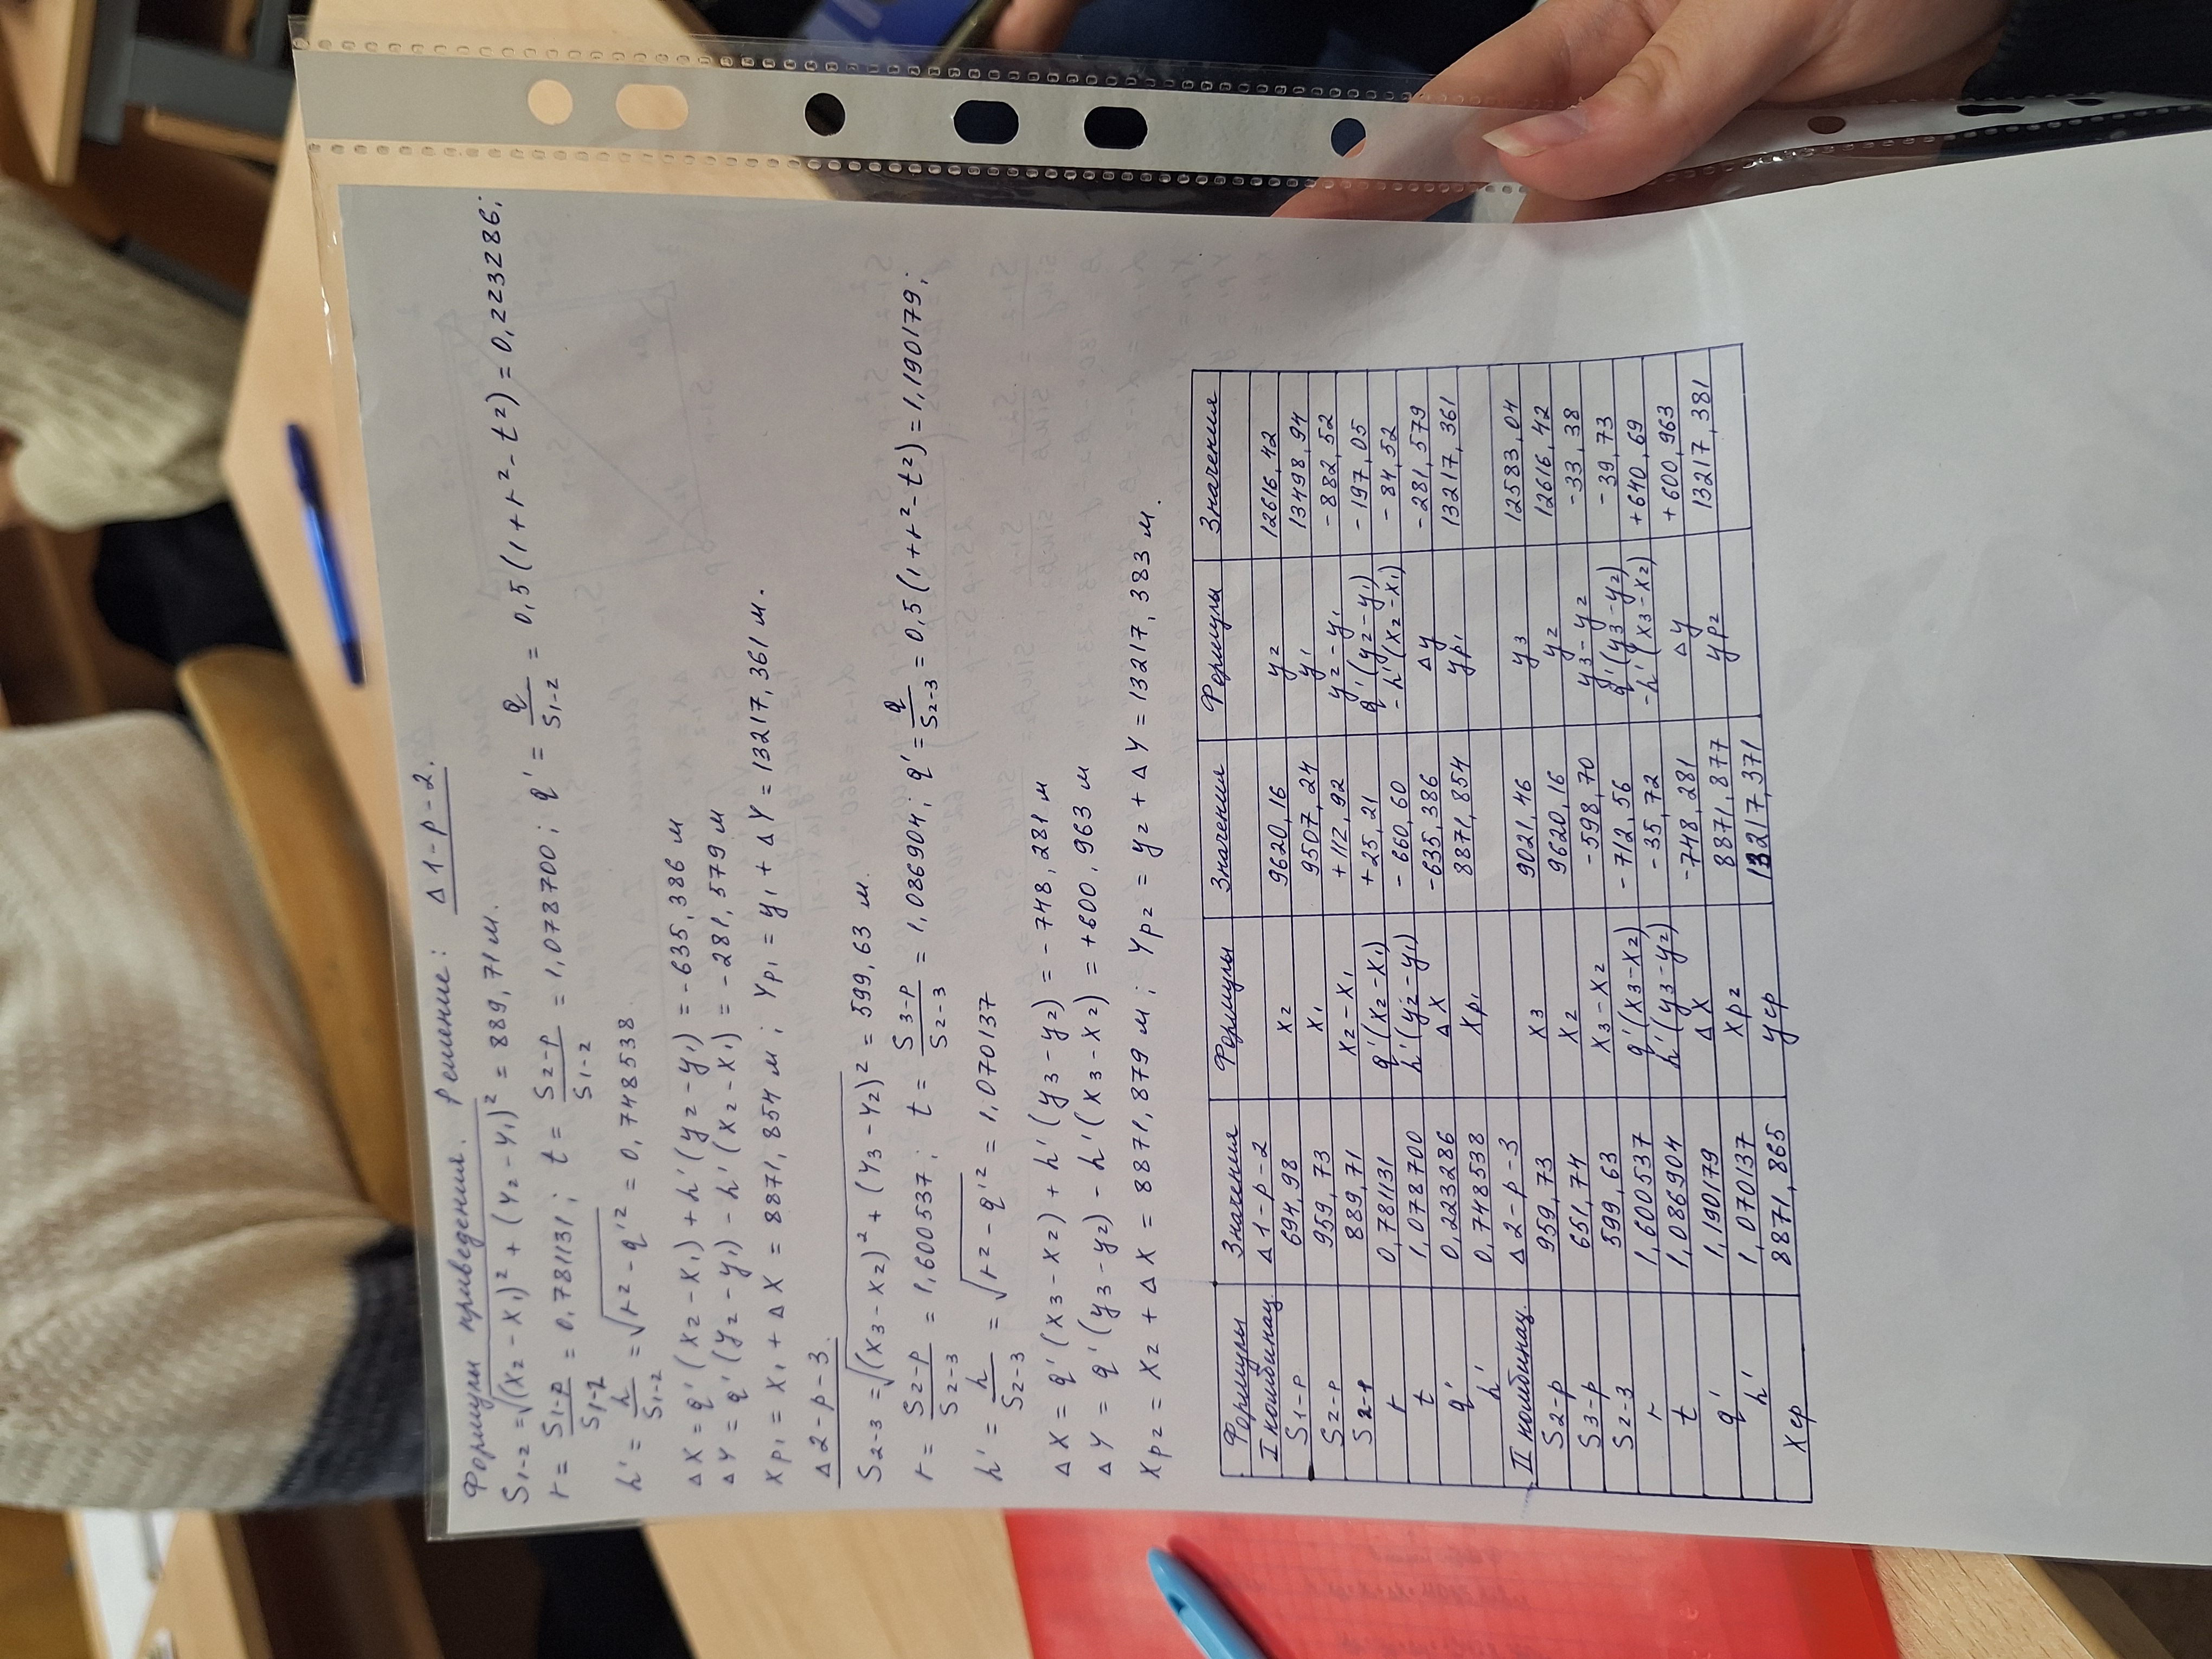 Формулы приведения. Решение: Δ 1-p-2.
S1-2 = √(X2 - X1)² + (Y2 - Y1)² = 889,71 м.
r = S1-p/S1-2 = 0,781131; t = S2-p/S1-2 = 1,078700; q' = q/S1-2 = 0,5(1+r²-t²) = 0,223286;
h' = h/S1-2 = √r² - q'² = 0,748538
ΔX = q'(X2-X1) + h'(y2-y1) = -635,386 м
ΔY = q'(y2-y1) - h'(X2-X1) = -281,579 м
Xp1 = X1 + ΔX = 8871,854 м; Yp1 = y1 + ΔY = 13217,361 м.
Δ 2-p-3.
S2-3 = √(X3-X2)² + (Y3-Y2)² = 599,63 м.
r = S2-p/S2-3 = 1,600537; t = S3-p/S2-3 = 1,086904; q' = q/S2-3 = 0,5(1+r²-t²) = 1,190179;
h' = h/S2-3 = √r² - q'² = 1,070137
ΔX = q'(X3-X2) + h'(y3-y2) = -748,281 м
ΔY = q'(y3-y2) - h'(X3-X2) = +600,963 м
Xp2 = X2 + ΔX = 8871,879 м; Yp2 = y2 + ΔY = 13217,383 м.
Формулы Значения Формулы Значения Формулы Значения
I комбинац. Δ 1-p-2
S1-p 694,98 X2 9620,16 y2 12616,42
S2-p 959,73 X1 9507,24 y1 13498,94
S2-1 889,71 X2-X1 +112,92 y2-y1 -882,52
r 0,781131 q'(X2-X1) +25,21 q'(y2-y1) -197,05
t 1,078700 h'(y2-y1) -660,60 -h'(X2-X1) -84,52
q' 0,223286 ΔX -635,386 Δy -281,579
h' 0,748538 Xp1 8871,854 yp1 13217,361
II комбинац. Δ 2-p-3
S2-p 959,73 X3 9021,46 y3 12583,04
S3-p 651,74 X2 9620,16 y2 12616,42
S2-3 599,63 X3-X2 -598,70 y3-y2 -33,38
r 1,600537 q'(X3-X2) -712,56 q'(y3-y2) -39,73
t 1,086904 h'(y3-y2) -35,72 -h'(X3-X2) +640,69
q' 1,190179 ΔX -748,281 Δy +600,963
h' 1,070137 Xp2 8871,877 yp2 13217,381
Xср 8871,865 yср 13217,371